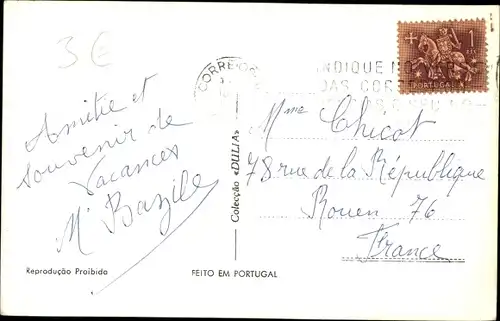 3 €
CORREIO
INDIQUE N
DAS COR
1
PORTUGAL
Amitié et
souvenir de
Vacances
M. Bazile
Colecção «DULIA»
Mme Chicot
78 rue de la République
Rouen 76
France
Reprodução Proibida
FEITO EM PORTUGAL